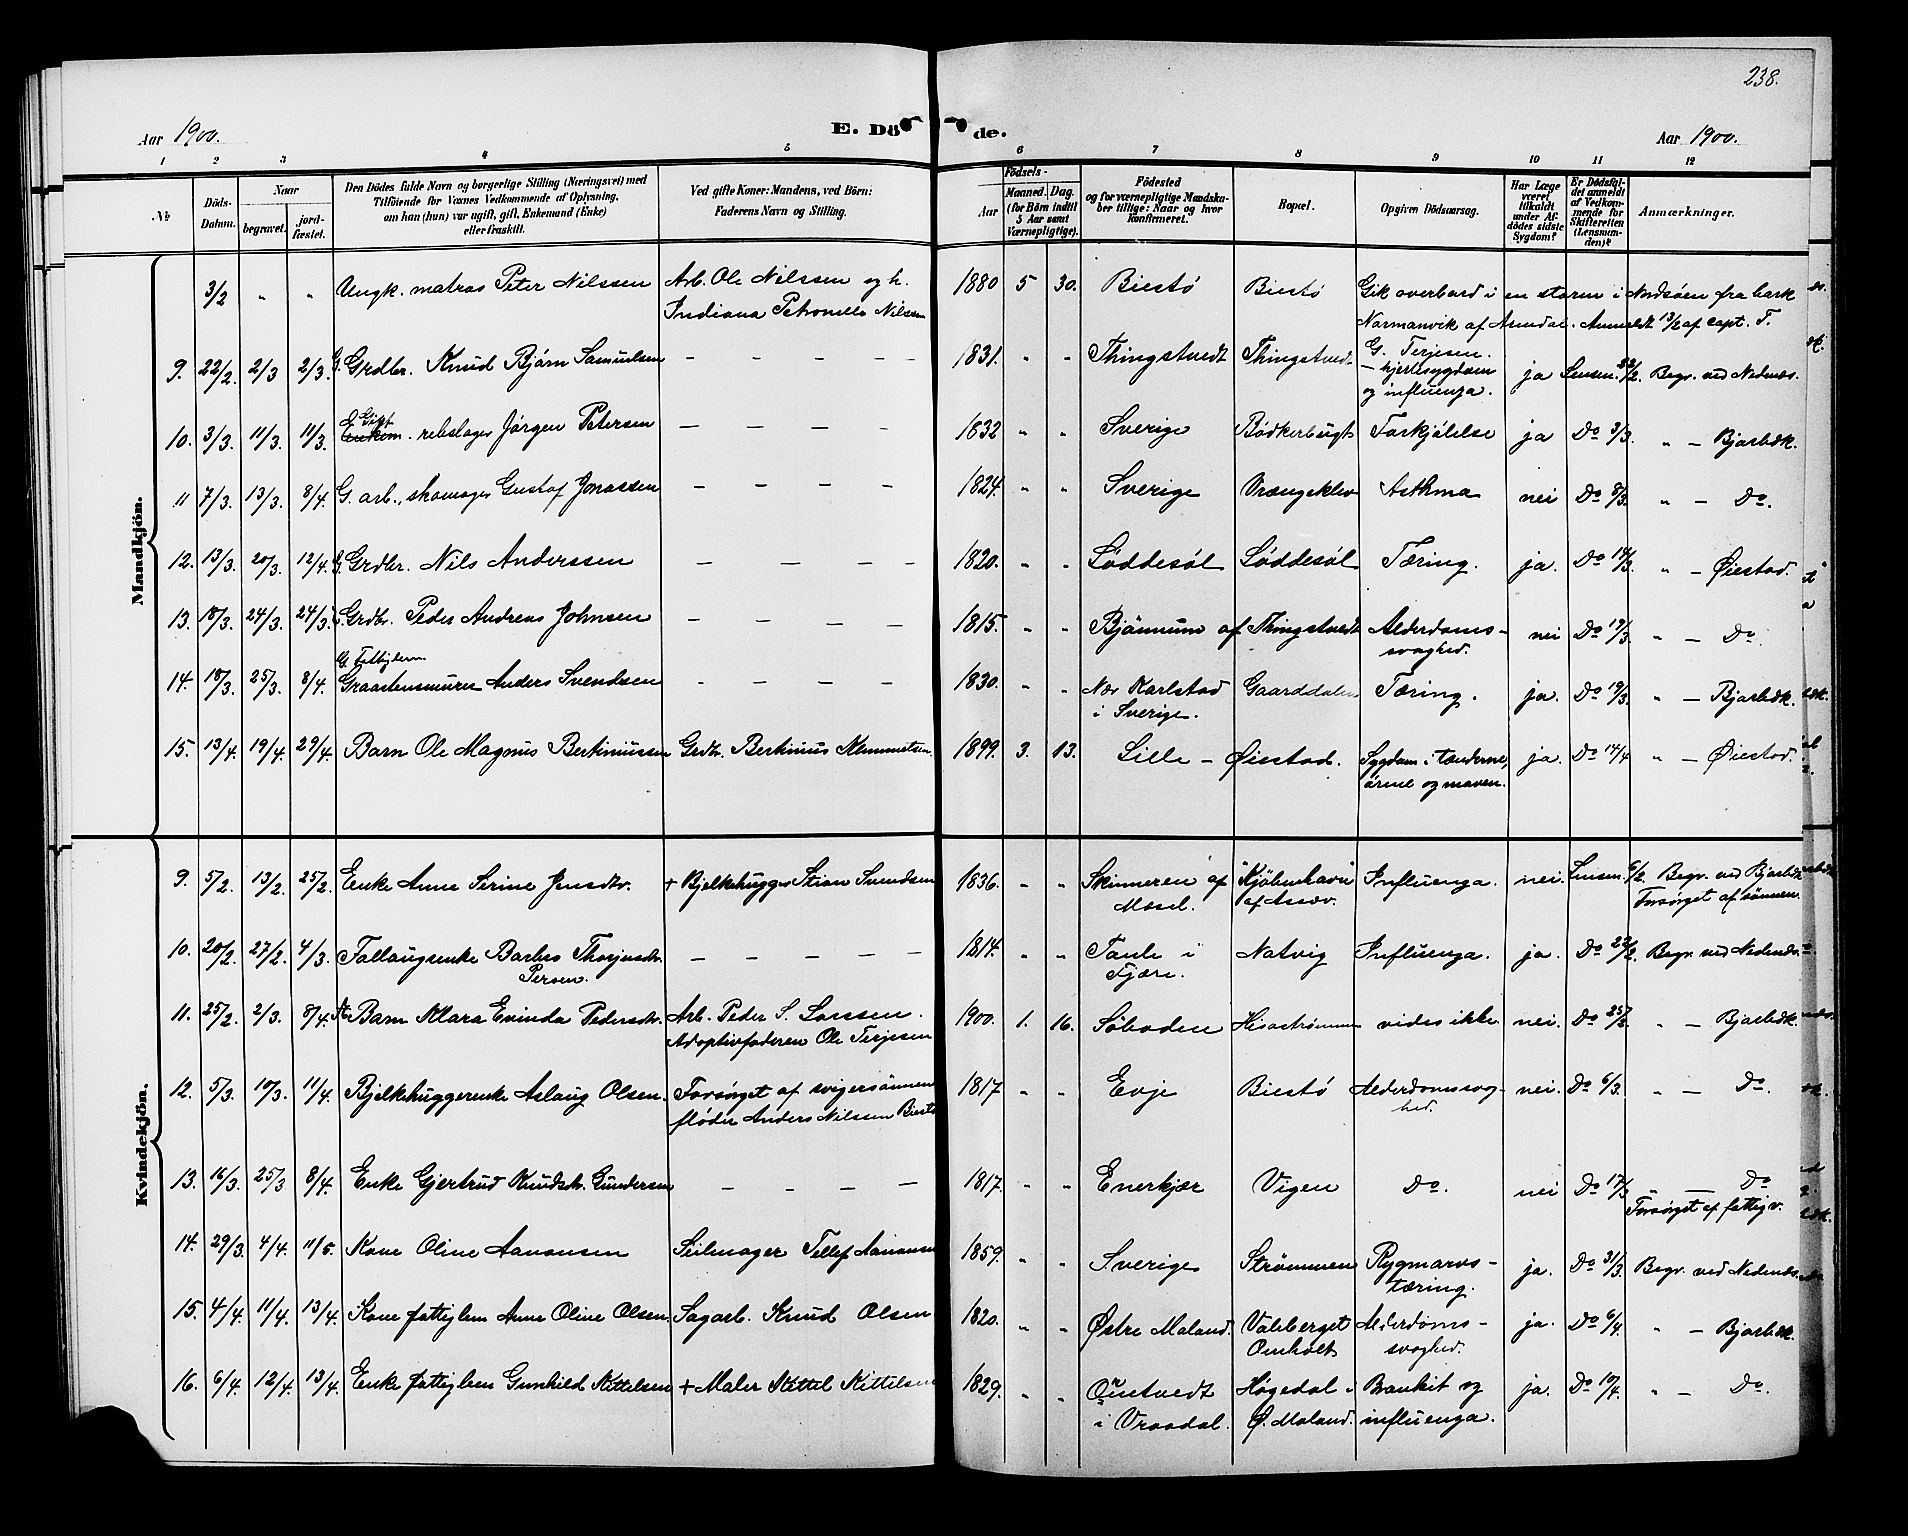 238.
Aar 1900.
E. Dö de.
Aar 1900.
1 2 3 4 5 6 7 8 9 10 11 12
No
Döds-Datum.
Naar begravet. jord-fæstet.
Den Dödes fulde Navn og borgerlige Stilling (Næringsvei) med Tilföiende for Voxnes Vedkommende af Oplysning, om han (hun) var ugift, gift, Enkemand (Enke) eller fraskilt.
Ved gifte Koner: Mandens, ved Börn: Faderens Navn og Stilling.
Födsels- Aar Maaned. Dag. (for Börn indtil 5 Aar samt Værnepligtige).
Födested og for værnepligtige Mandskaber tillige: Naar og hvor konfirmeret.
Bopæl.
Opgiven Dödsaarsag.
Har Læge været tilkaldt under Afdödes sidste Sygdom?
Er Dödsfaldet anmeldt af Vedkommende for Skifteretten (Lensmanden)?
Anmærkninger.
Mandkjön.
3/2 " " Ungk. matros Peter Nilssen Arb. Ole Nilssen og h. 1880 5 30. Biestø Biestø Gik overbord i en storm i Nordsøen fra bark
Indiana Petronelle Nilsen Normanvik af Arendal. Anmeldt 13/2 af capt. T.
9. 22/2. 2/3 2/3. G. Grdbr. Knud Bjørn Samuelsen — — — — 1831. " " Thingstvedt Thingstvedt G. Terjesen. — hjertesygdom ja Lensm. 22/2. Begr. ved Nedenæs.
og influenza.
10. 3/3. 11/3. 11/3. G. Gift rebslager Jørgen Petersen — — — — 1832 " " Sverige Bødkerbugt Forkjølelse ja Do 3/3. " — Bjorbæk.
11 7/3. 13/3. 8/4. G. arb., skomager Gustaf Jonassen — — — — 1824. " " Sverige Vrængeklev Asthma nei Do 8/3. " — Do.
12. 13/3. 20/3. 12/4. G. Grdbr. Nils Anderssen — — — — 1820. " " Løddesøl Løddesøl Tæring. ja. Do 14/3. " — Øiestad.
13. 18/3. 24/3. 24/3. Grdbr. Peder Andreas Johnsen — — — — 1815. " " Bjønnum af Thingstvedt Alderdoms- nei Do 19/3. " — Do.
svaghed.
G. Fattiglem
14. 18/3. 25/3. 8/4. Graastensmurer Anders Svendsen — — — — 1830. " " Nær Karlstad Gaarddalen Tæring. ja. Do 19/3. " — Bjorbæk.
i Sverige.
15. 13/4. 19/4. 29/4. Barn Ole Magnus Bertiniussen Grdbr. Bertinius Klemmetsen. 1899. 3. 13. Lille — Øiestad. Sygdom i tænderne, ja. Do 14/4 " — Øiestad.
ørene og maven.
Kvindekjön.
9. 5/2. 13/2. 25/2. Enke Anne Serine Jensdtr. + Bjelkehugger Stian Svendsen 1836. " " Skinneren af "Kjøbenhavn" Influenza. nei. Lensm. 6/2. Begr. ved Bjorbæk
Mæsel. af Assev. Forsørget af sønnen.
10. 20/2. 27/2. 4/3. Fallaugsenke Barbro Thorjusdtr. — — — — — 1814. " " Taule i Natvig Influenza. ja. Do 22/2. Begr. ved Nedenæs.
Persen. Fjære.
11. 25/2. 2/3. 8/4. Barn Klara Evinda Pedersdtr. Arb. Peder S. Larssen. 1900. 1. 16. Søboden Hisøstrømmen vides ikke. nei. Do 25/2. " — Bjorbæk.
Adoptivfaderen Ole Terjesen
12. 5/3. 10/3. 11/4. Bjelkehuggerenke Aslaug Olsen. Forsørget af svigersønnen 1817 " " Evje Biestø Alderdomssvag- nei Do 6/3. " — Do.
fløder Anders Nilssen Biestø hed.
13. 16/3. 25/3 8/4. Enke Gjertrud Knudsdtr. Gundersen — — — — 1817. " " Enerkjær Vigen Do. nei Do 17/3 " — Do
Forsørget af fattigv.
14. 29/3. 4/4. 11/5. Kone Oline Aanonsen Seilmager Tellef Aanonsen 1859. " " Sverige Strømmen Rygmarvs- ja. Do 31/3. Begr. ved Nedenæs.
tæring.
15. 4/4. 11/4. 13/4. Kone fattiglem Anne Oline Olsen. Sagarb. Knud Olsen 1820. " " Østre Moland. Valeberget Alderdoms- ja. Do 6/4. " — Bjorbæk.
Omholt svaghed.
16. 6/4. 12/4. 13/4. Enke fattiglem Gunhild Kittelsen + Maler Kittel Kittelsen 1829. " " Qvistvedt Høgedal i Bronkit og ja. Do 10/4. " — Do.
i Vraadal. Ø. Moland. influenza.